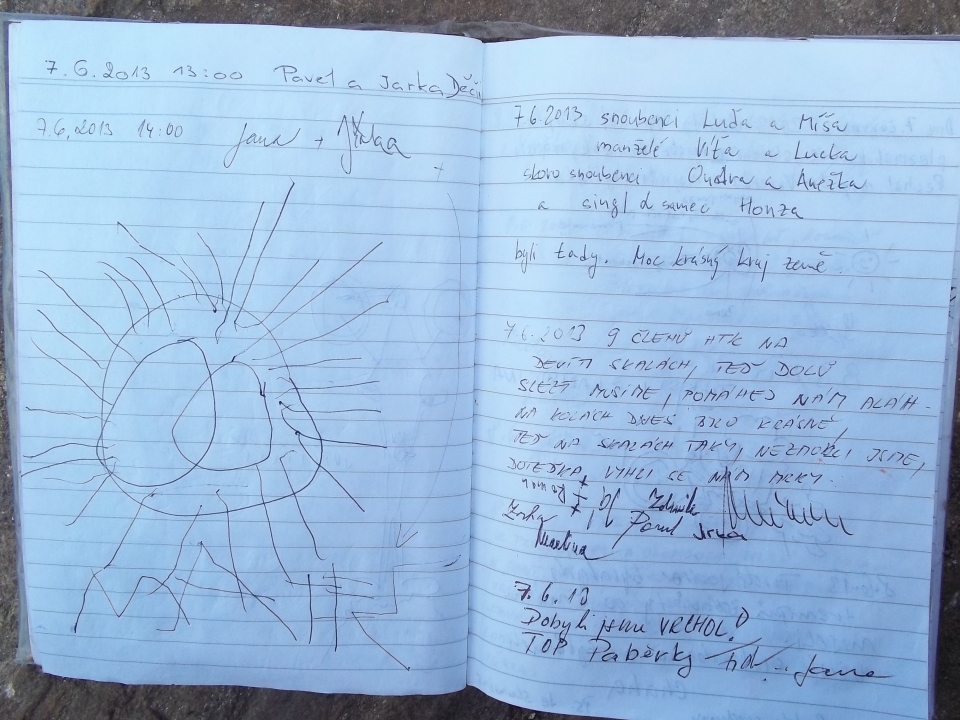 7.6.2013 13:00 Pavel a Jarka Děčín
7.6.2013 14:00 Jana + Jirka
7.6.2013 snoubenci Luďa a Míša
manželé Víťa a Lucka
skoro snoubenci Ondra a Anežka
a singl d samec Honza
byli tady. Moc krásný kraj země.
7.6.2013 9 ČLENŮ HTK NA
DEVÍTI SKALÁCH, TEĎ DOLŮ
SLÉZT MUSÍME, POMÁHEJ NÁM ALÁH.
NA KOLÁCH DNES BYLO KRÁSNĚ,
TEĎ NA SKALÁCH TAKY, NEZMOKLI JSME,
DOTEĎKA, VYHLI SE NÁM MRKY.
Zdeněk
Pavel Jirka
Martina
7.6.13
Dobyli jsme VRCHOL!
TOP Paběrky Jana